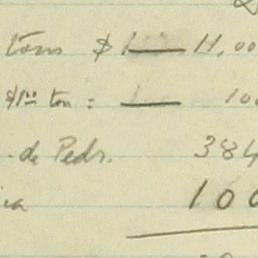 tons $1— 11,00
$1⁰⁰ ton = 1— 100
. de Pedr. 384
ica 100